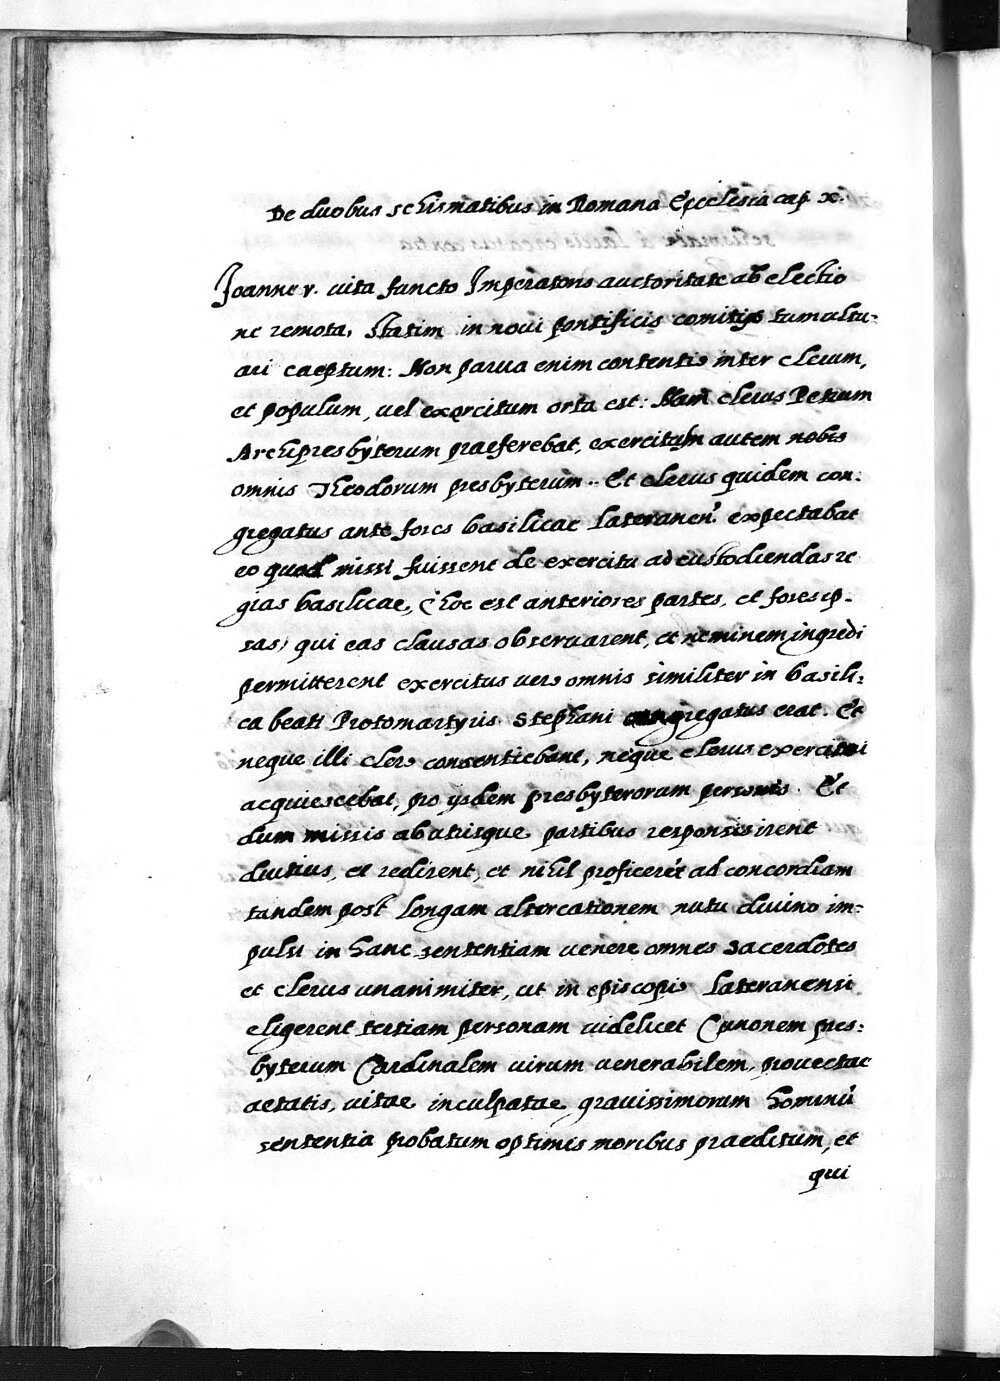 De duobus schismatibus in Romana Ecclesia cap. x.
Joanne v. vita functo Imperatoris auctoritate ab electio
ne remota, statim in novi pontificis comitijs tumultu-
ari caeptum: Non parva enim contentio inter clerum,
et populum, vel exercitum orta est: Nam clerus Petrum
Archipresbyterum praeferebat, exercitus autem nobis
omnis Theodorum presbyterum. Et clerus quidem con-
gregatus ante fores basilicae lateranen. expectabat
eo quod missi fuissent de exercitu ad custodiendas re
gias basilicae, hoc est anteriores partes, et fores ip-
sas, qui eas clausas observarent, et neminem ingredi
permitterent exercitus vero omnis similiter in basili-
ca beati Protomartyris Stephani congregatus erat. Et
neque illi clero consentiebant, neque clerus exercitui
acquiescebat, pro ijsdem presbyterorum personis. Et
dum missis ab utrisque partibus responsis irent
diutius, et redirent, et nihil proficerēt ad concordiam
tandem post longam altercationem nutu divino im-
pulsi in hanc sententiam venere omnes sacerdotes
et clerus unanimiter, ut in episcopio Lateranensi
eligerent tertiam personam videlicet Cunonem pres-
byterum Cardinalem virum venerabilem, provectae
aetatis, vitae inculpatae gravissimorum hominū
sententia probatum optimis moribus praeditum, et
qui